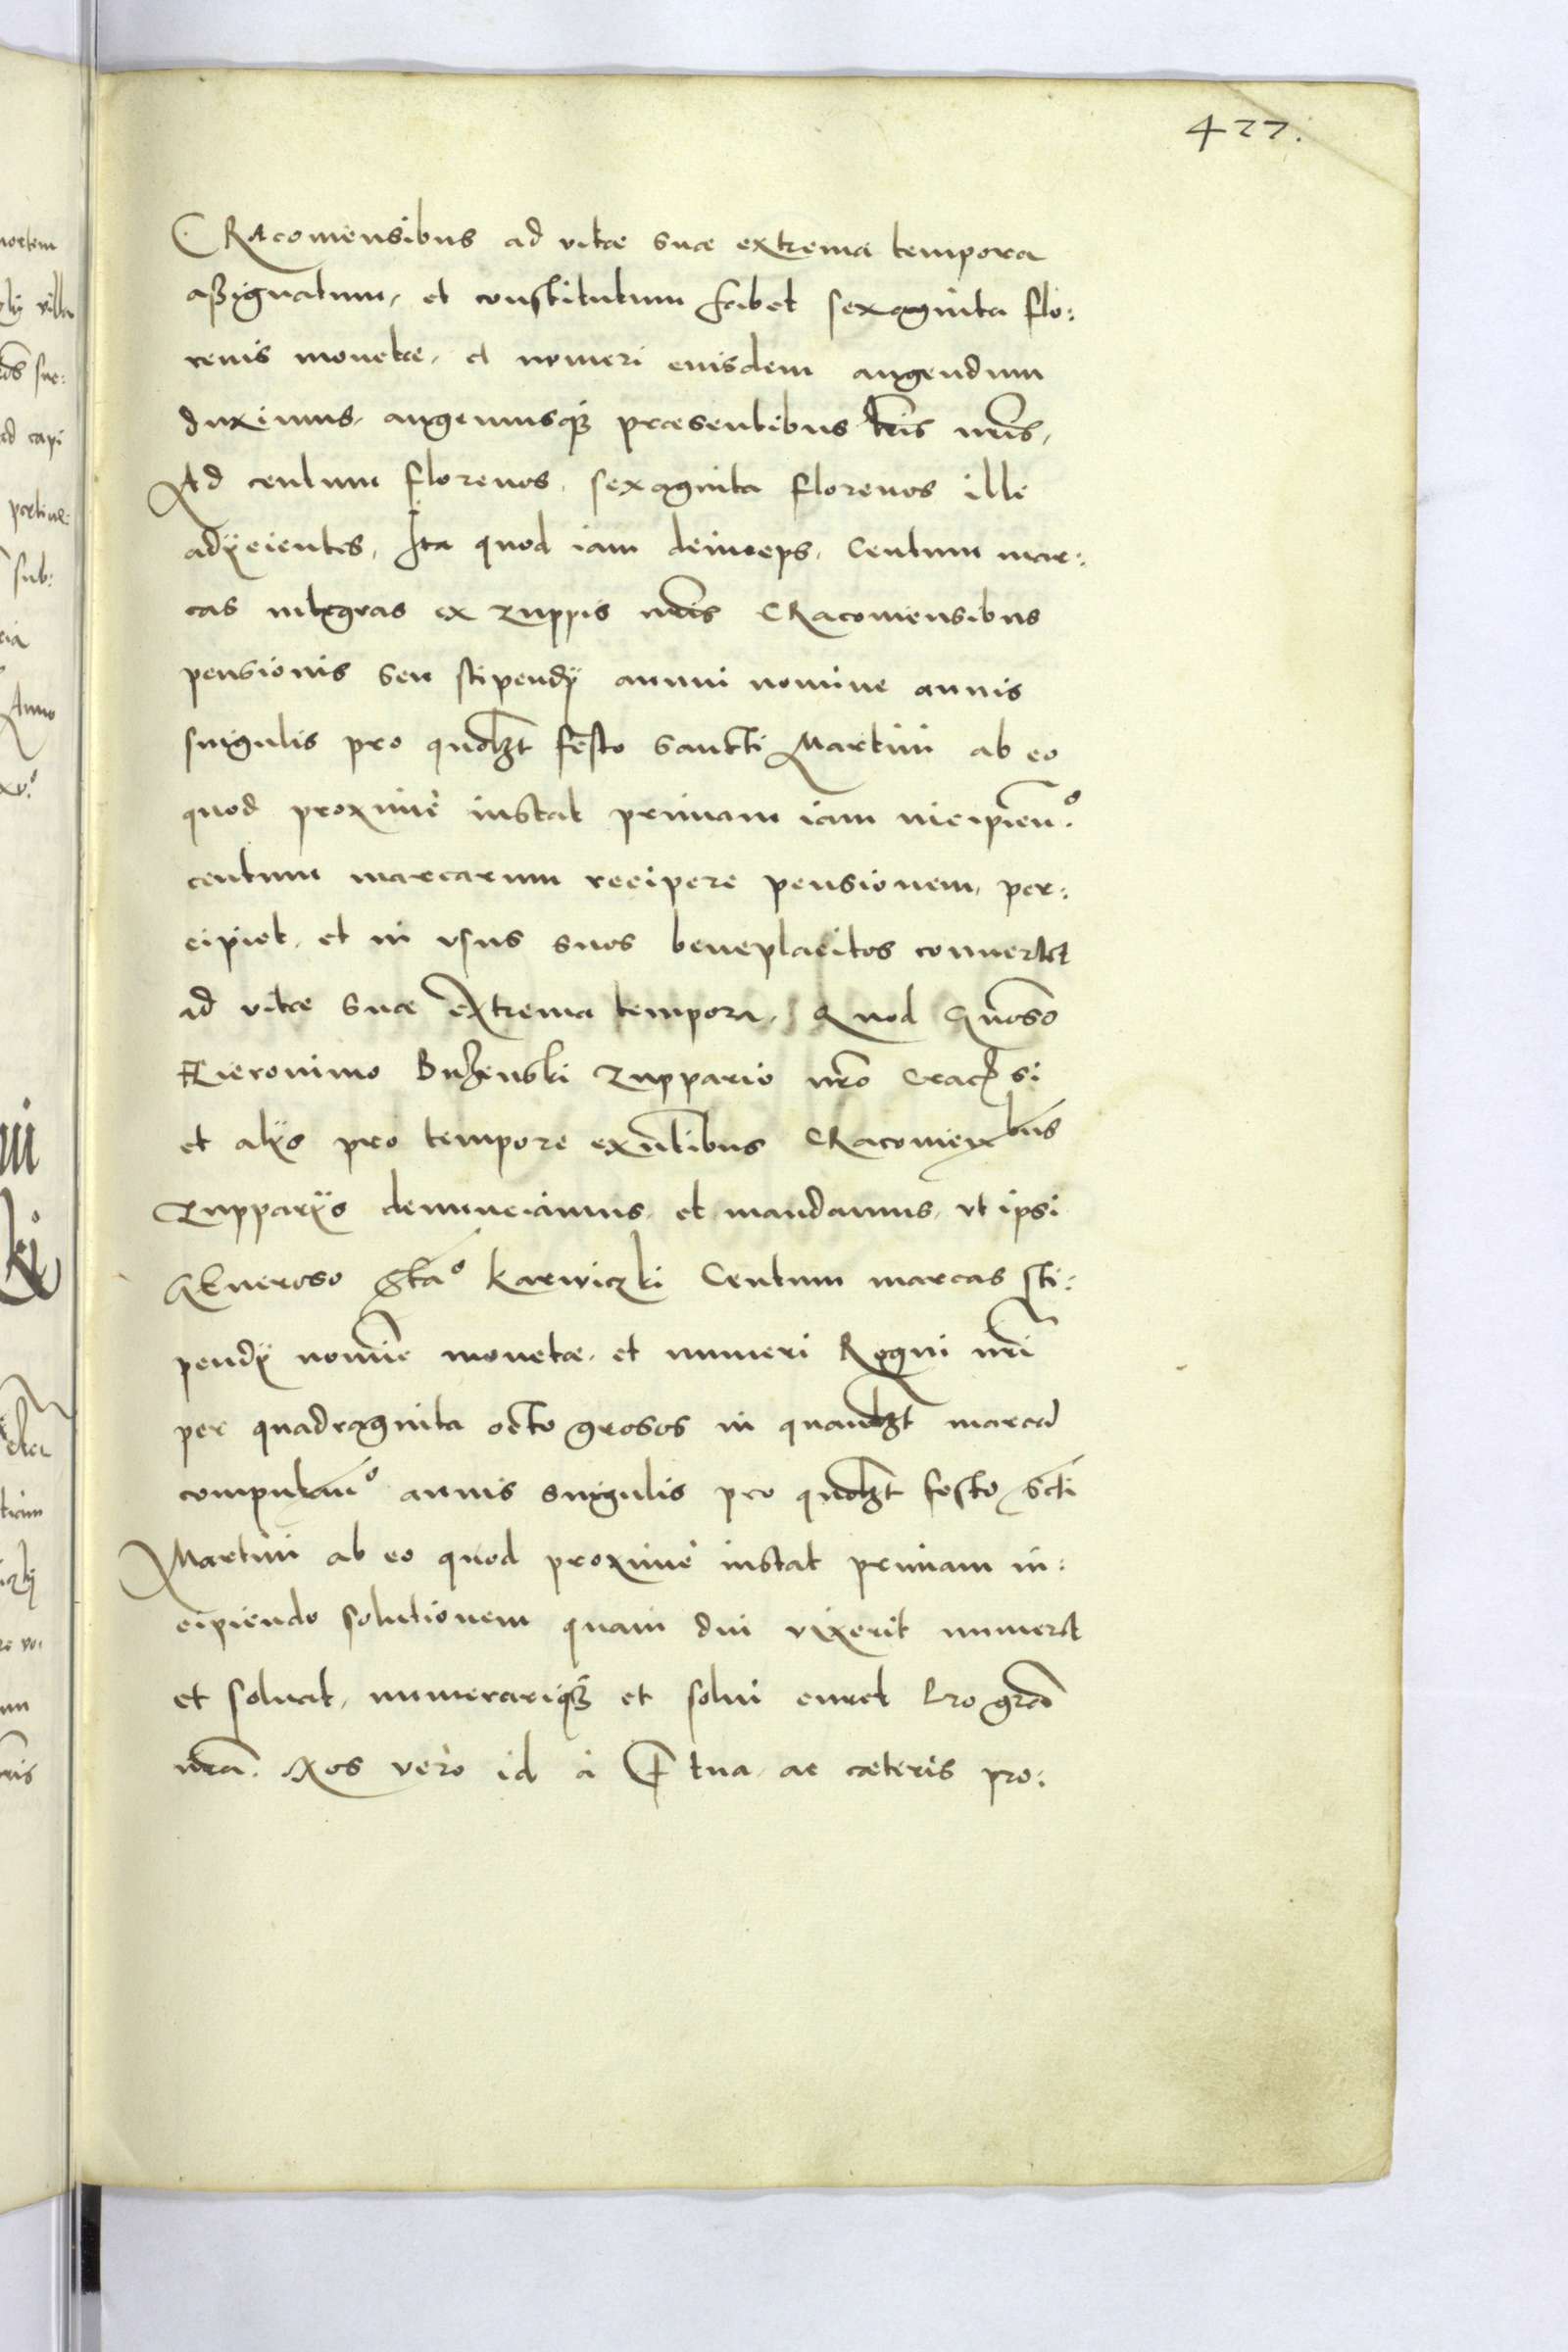 427.
CRacoviensibus ad vitæ suæ extrema tempora
aßignatum, et constitutum habet sexaginta flo:
renis monetæ, et numeri eiusdem augendum
duximus, augemusq3 præsentibus lris nris,
Ad centum florenos, sexaginta florenos illi
adÿcientes, Ita quod iam deinceps, Centum mar:
cas integras ex zuppis nris CRacoviensibus
pensionis seu stipendÿ annui nomine annis
singulis pro quolzt festo sancti Martini ab eo
quod proxime instat primam iam incipien.º
centum marcarum recipere pensionem, per:
cipiet, et in vsus suos beneplacitos convertet
ad vitæ suæ extrema tempora, Quod Gnoso
Hieronimo Buzenski zuppario nro Cracsi
et alÿs pro tempore exntibus Cracovienbus
zupparÿs denunciamus, et mandamus, vt ipsi
GEneroso Stаº Karwiczki Centum marcas sti:
pendÿ nomine monetæ, et numeri Regni nri
per quadraginta octo grosos in quamlzt marcā
computanº annis singulis pro quolzt festo scti
Martini ab eo quod proxime instat primam in:
cipiendo solutionem quam diu vixerit numeret
et soluat, numerariq3 et solui curet pro gra
nra. Nos vero id a F tua, ac cæteris pro: